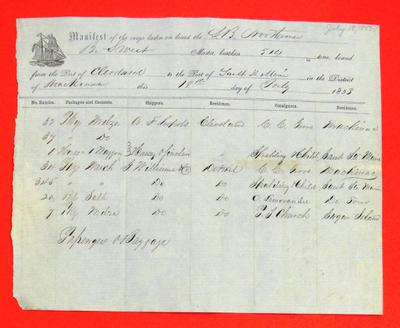 July 18, 1853
Manifest of the cargo laden on board the S. B. Northerner
B. Sweet Master, burthen 514 tons bound
from the Port of Cleveland to the Port of Sault St Marie in the District
of Mackinac this 18th day of July 1853
No. Entries. Packages and Contents. Shippers. Residence. Consignees. Residence.
32 Pkg Mdze Cleveland C. C. Mackinac
37 " Do " "
1 Horse 1 Waggon " Spalding & Child Saut Ste Marie
34 Pkg Mdze J. Williams & Co Detroit C. C. Mackinac
345 " Do Do Spalding & Child Saut Ste Marie
20 Bbl Salt Do Do De Tour
7 Pkg Mdze Do Do P. S. Church Sugar Island
Passengers & Baggage